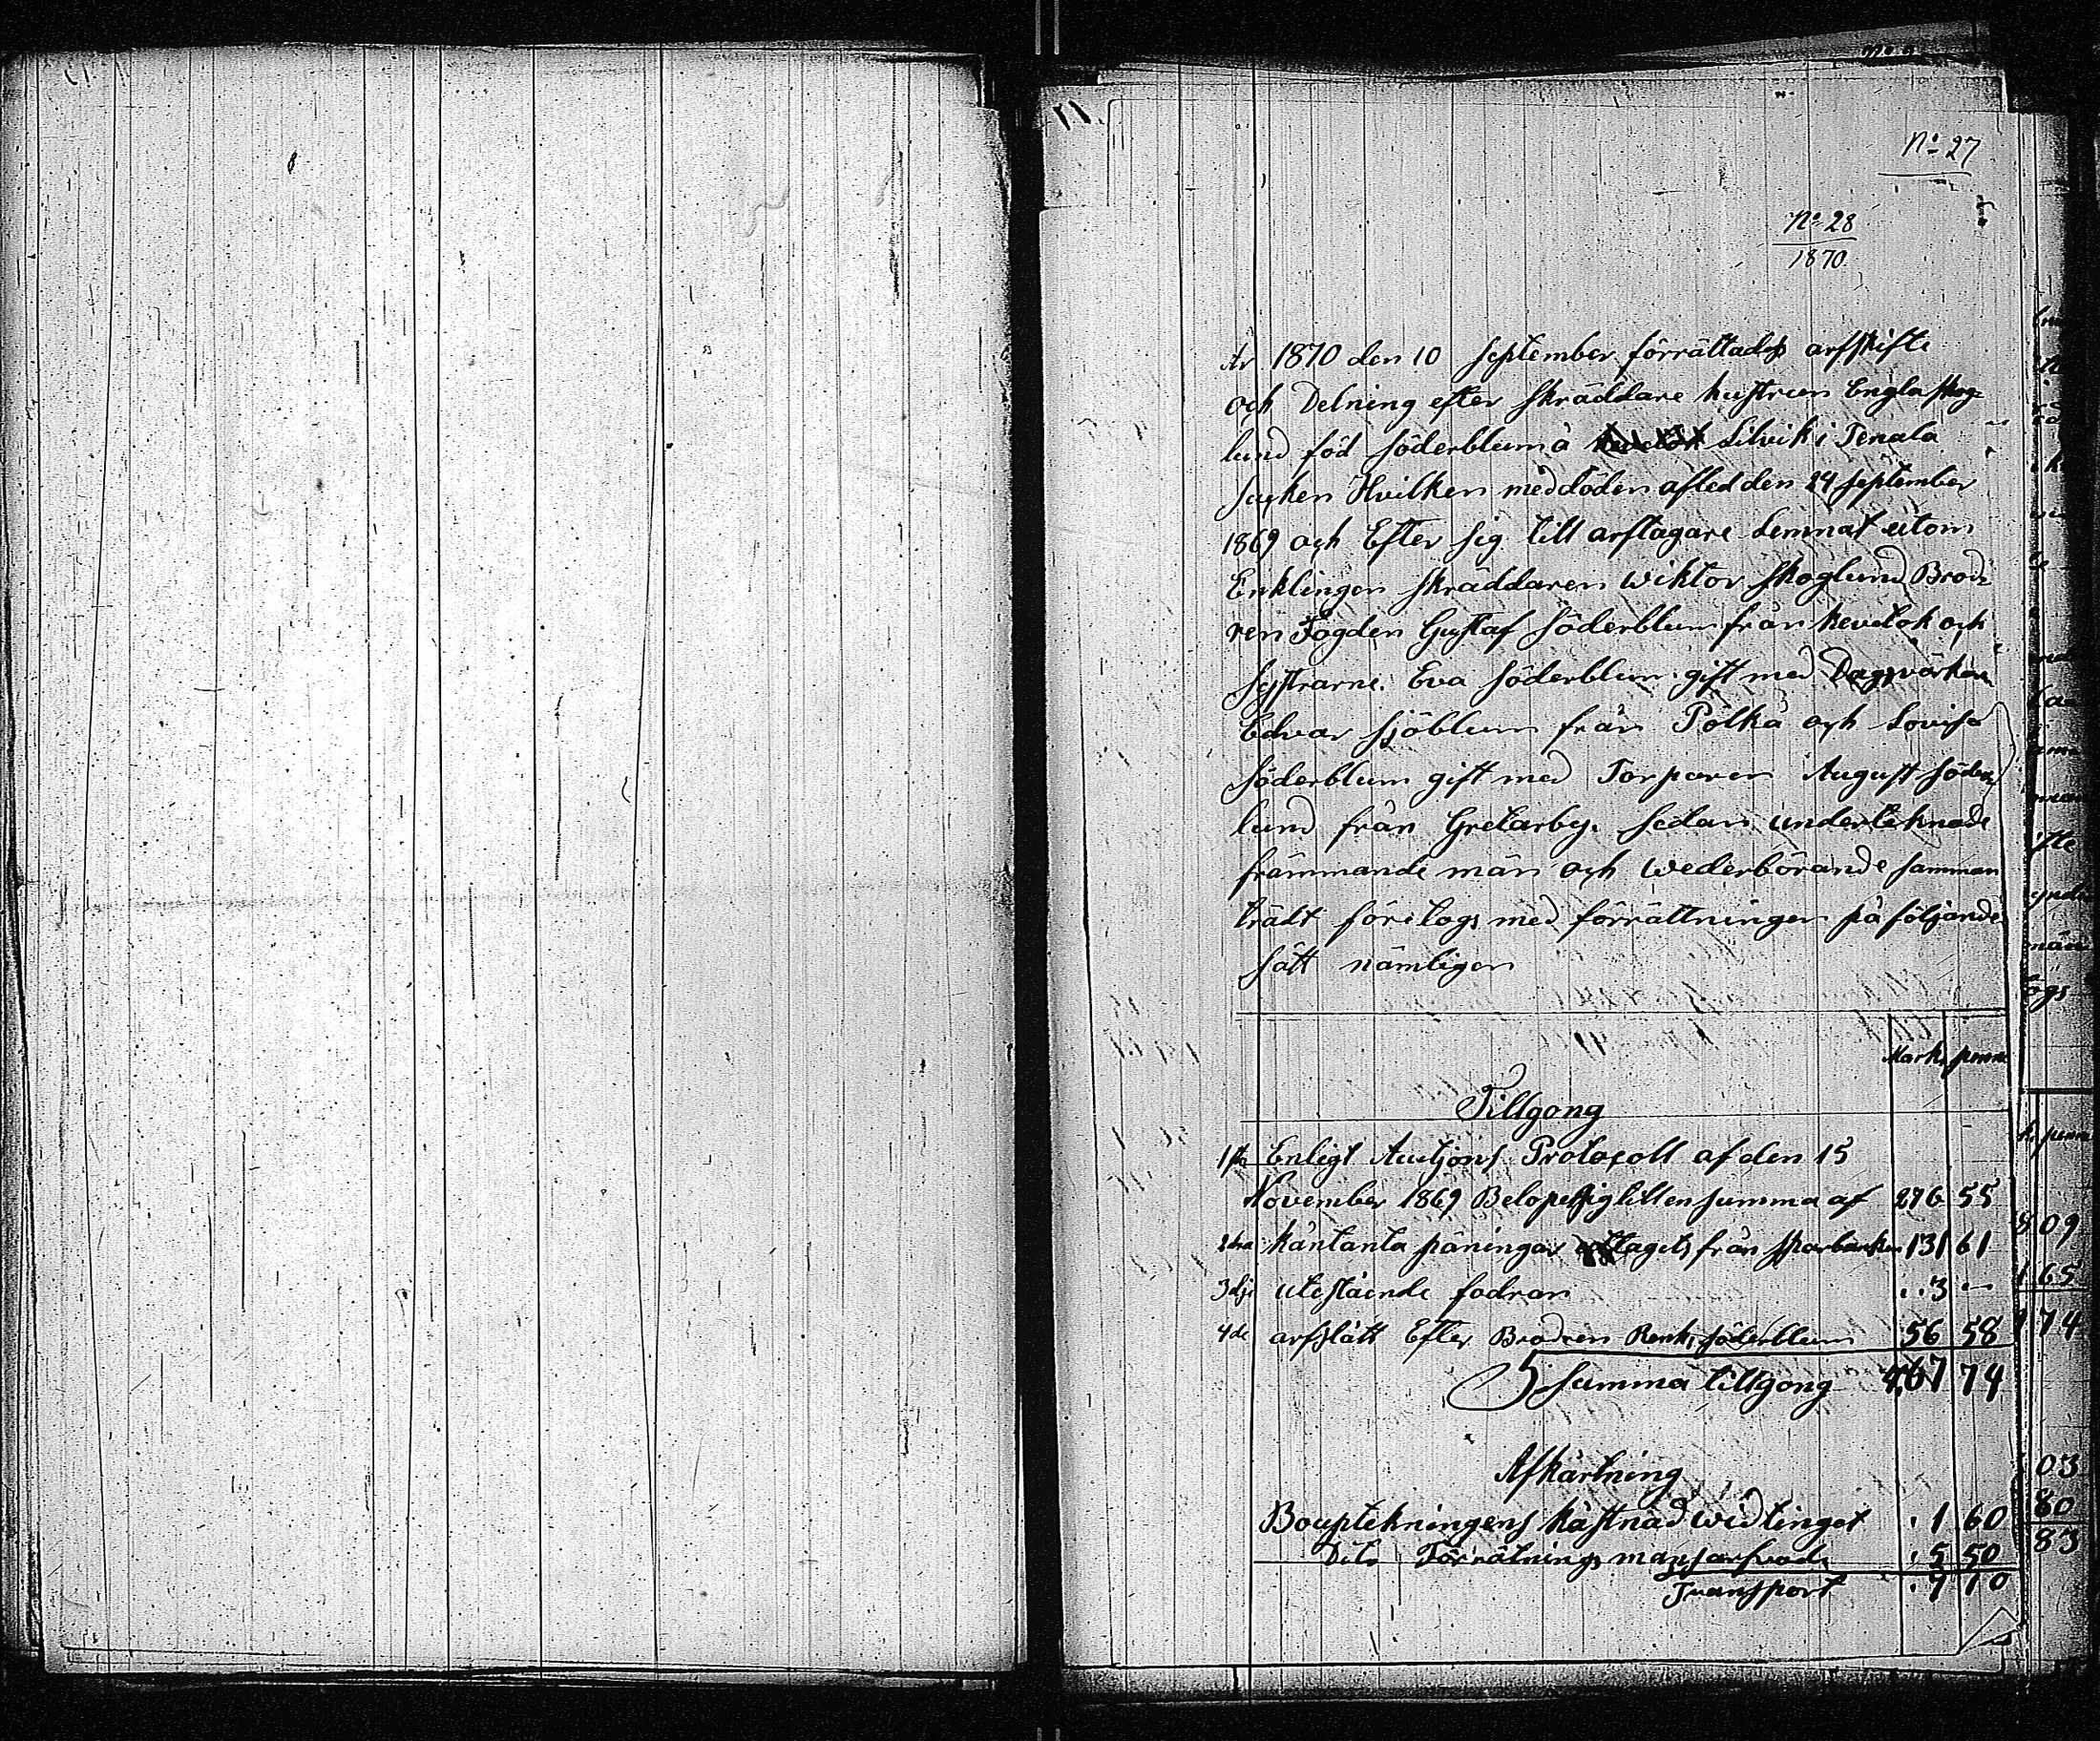 No 27
No 28
1870
År 1870 den 10 September förrättads arfskifte
och Delning efter Skräddare hustrun Engla Skog-
lund föd Söderblum å Lilvik i Tenala
Socken Hvilken med döden afled den 24 September
1869 och Efter sig till arftagare Lemnat utom
Enklingen Skräddaren Wiktor Skoglund Brod-
ren Fogden Gustaf Söderblum från Kevelok och
Systrarne Eva Söderblum gift med Dagsvärkar
Edvar Sjöblum från Pölkä och Lovisa
Söderblum gift med Torparen August Söder-
lund från Gretarby. Sedan underteknade
främmande män och Wederbörande samman
trädt företogs med förrättningen på följande
sätt nämligen
Mark penni
Tillgong
1sta Enligt Auctjons Protocoll af den 15
November 1869 Belopet sig till en summa af 276 55
2dra Käntanta päningar taget från Sparbanken 131 61
3dje utestående fodran 3 —
4de arfslått Efter Brodren Renk. Söderblum 56 58
Summa tillgong 467 74
Afkärtning
Bouptekningens Kåstnad wid tinget 1 60
Dito Förrätnings mans arfvode 5 50
Transport 7 10